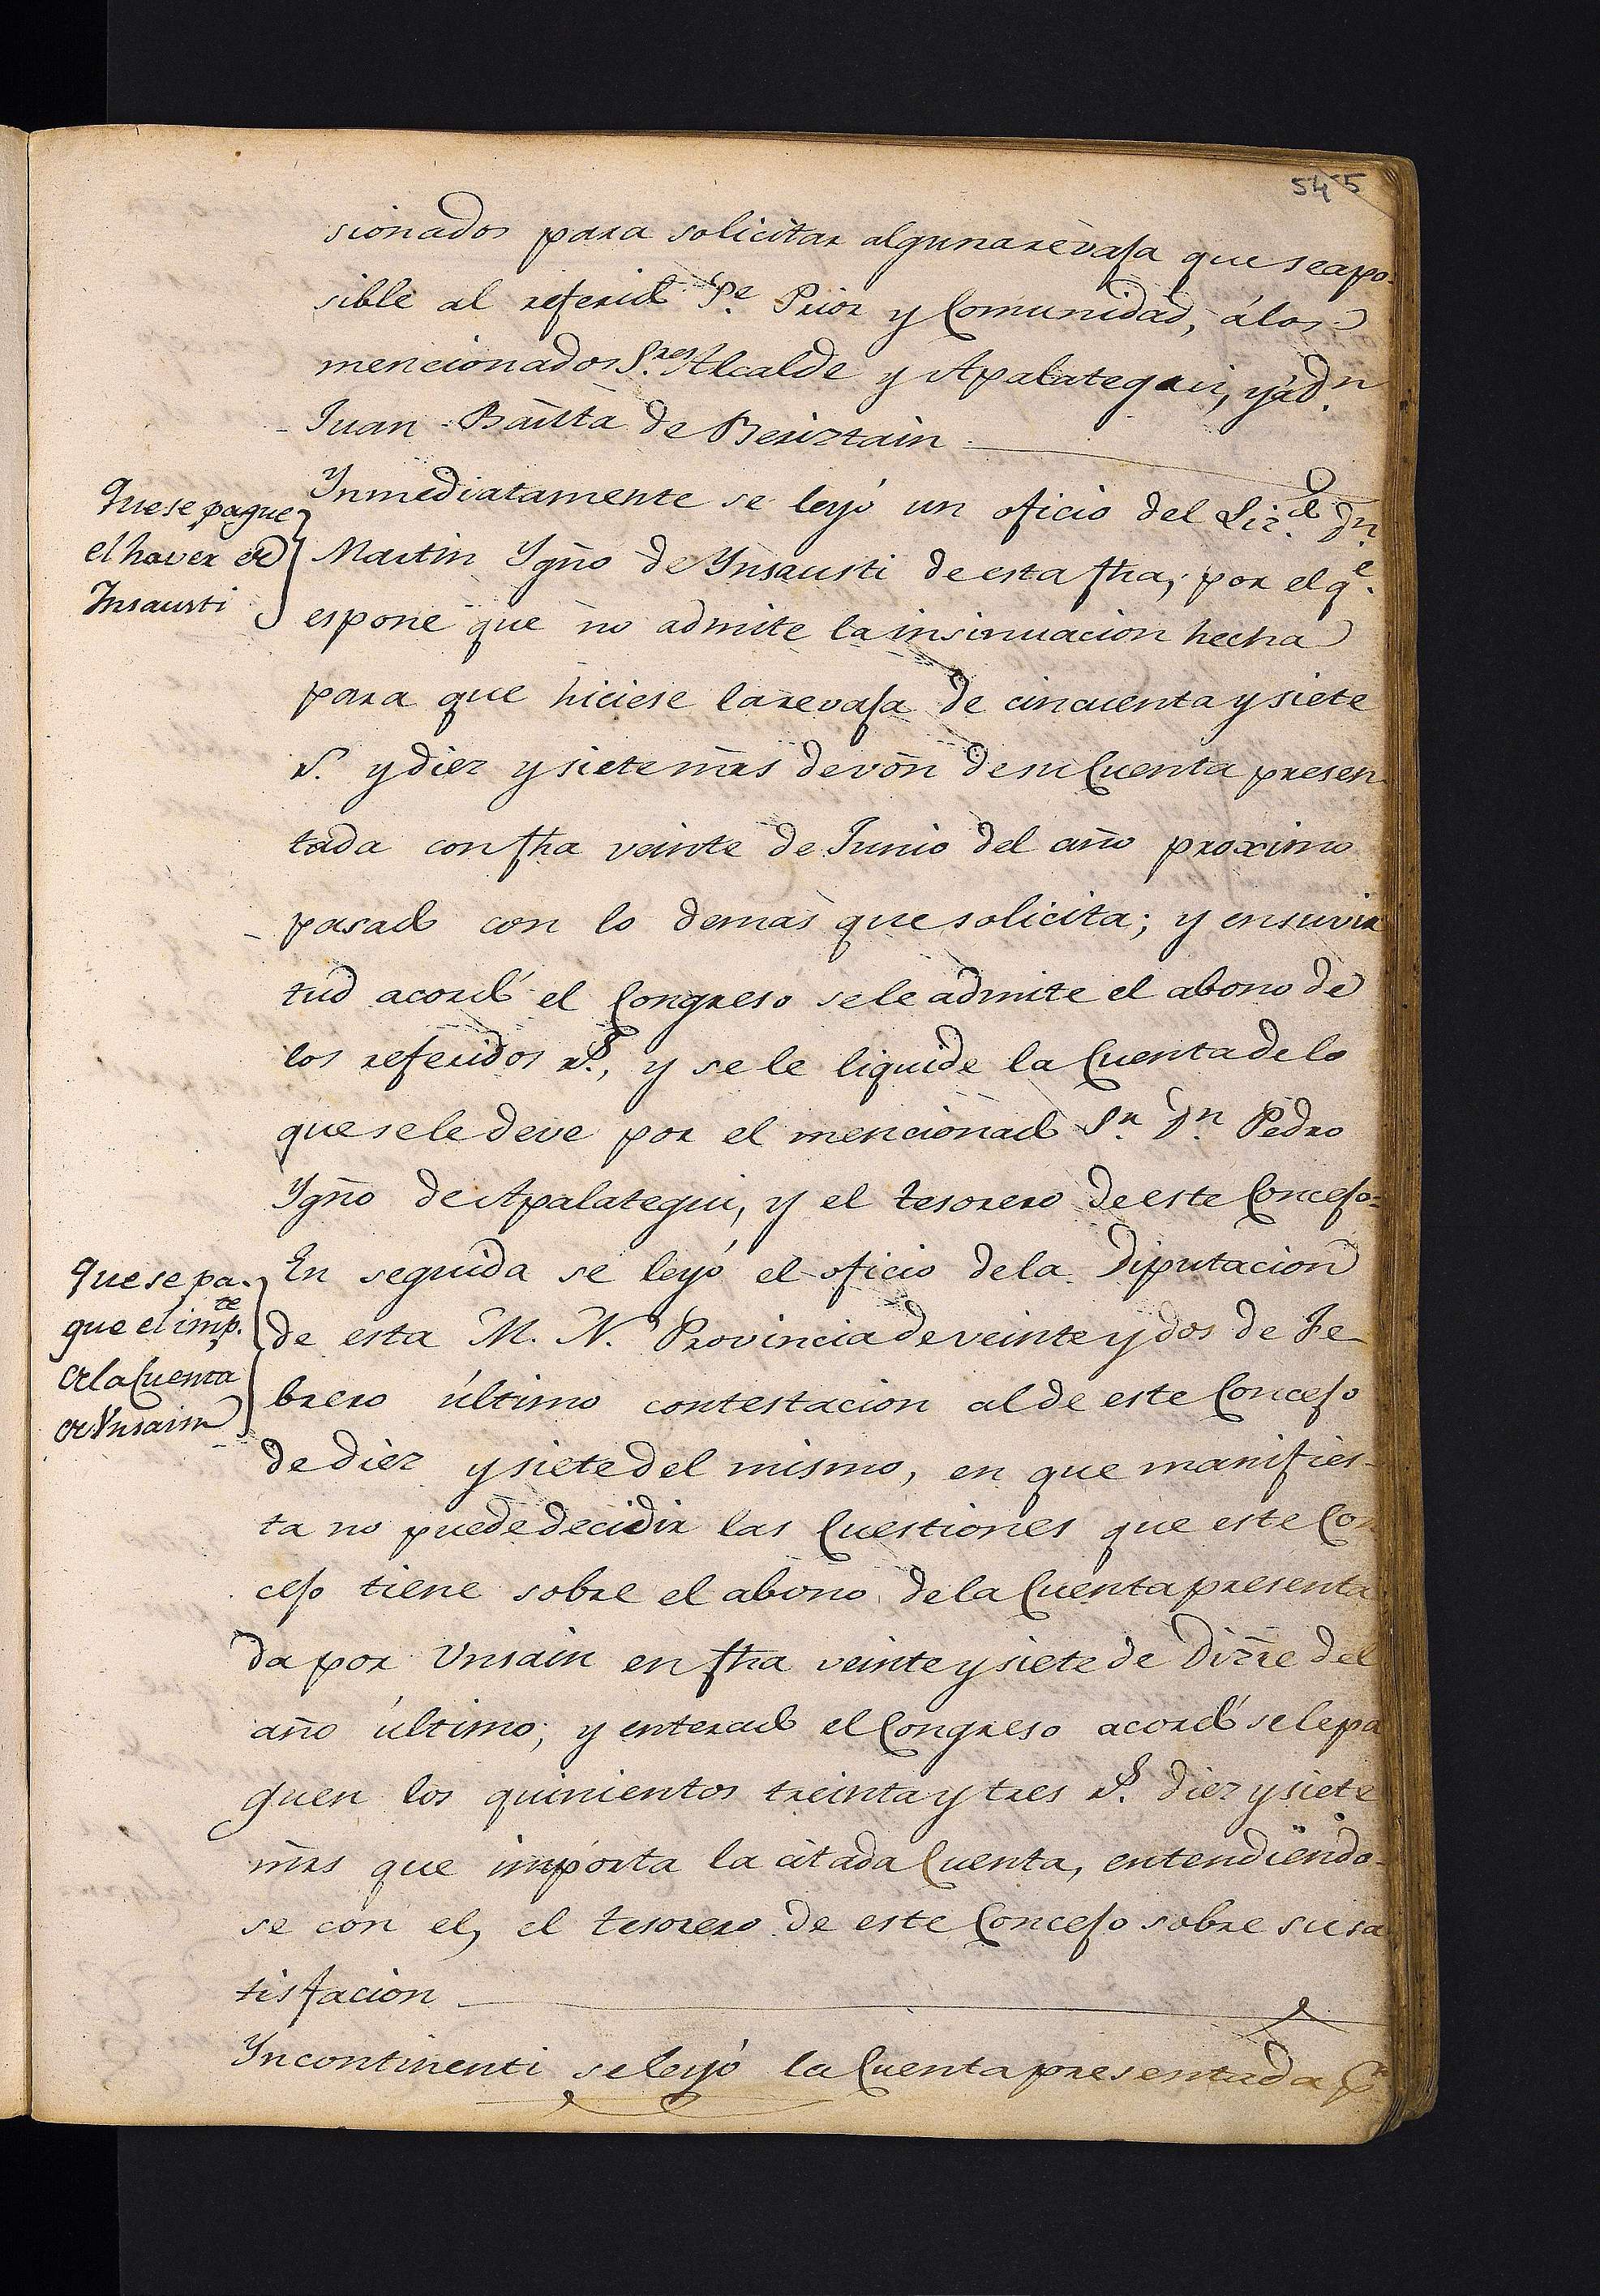 545
sionados para solicitar alguna revaja que sea po-
sible al referido Pe. Prior y Comunidad, á los
mencionados Sres. Alcalde y Apalategui, y á dn.
Juan Bauta. de Beriztain
Que se pague
el haver de
Insausti
Inmediatamente se leyó un oficio del Lizdo. Dn.
Martin Ygño de Ynsausti de esta fha, por el qe.
espone que no admite la insinuacion hecha
para que hiciese la revaja de cincuenta y siete
rs. y diez y siete mrs de von de su Cuenta presen-
tada con fha veinte de Junio del año proximo
pasado con lo demas que solicita; y en su vir
tud acordó el Congreso se le admite el abono de
los referidos rs., y se le liquide la Cuenta de lo
que se le deve por el mencionado Sr. Dn. Pedro
Ygño de Apalategui, y el tesorero de este Concejo=
Que se pa-
gue el impte.
de la Cuenta
de Unsain
En seguida se leyó el oficio de la Diputacion
de esta M. N. Provincia de veinte y dos de Fe-
brero último contestacion al de este Concejo
de diez y siete del mismo, en que manifies-
ta no puede decidir las Cuestiones que este Con
cejo tiene sobre el abono de la Cuenta presenta
da por Unsain en fha veinte y siete de Dizre del
año último; y enterado el Congreso acordó se le pa
guen los quinientos treinta y tres rs. diez y siete
mrs que importa la citada Cuenta, entendiendo-
se con el, el tesorero de este Concejo sobre su sa
tisfacion
Yncontinenti se leyó la Cuenta presentada pr.